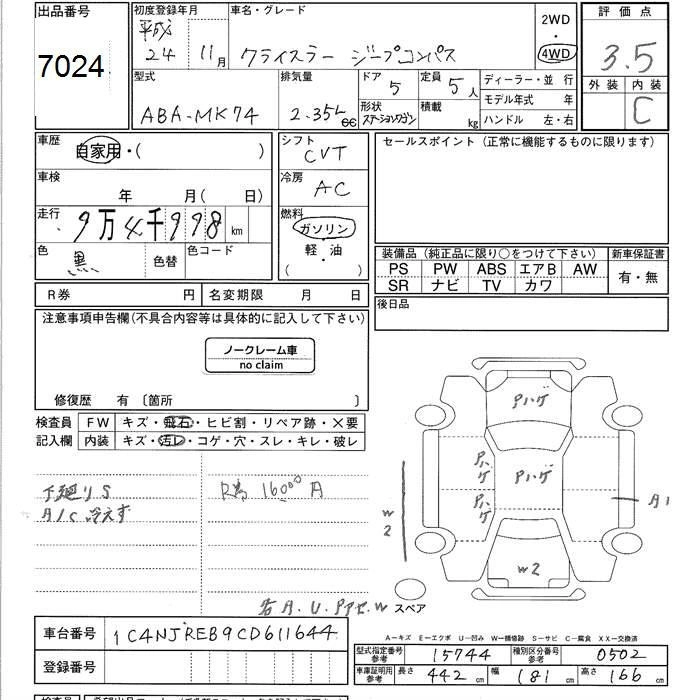 出品番号
7024
初度登録年月
平成
24 11月
車名・グレード
クライスラー ジープコンパス
2WD
・
4WD
評価点
3.5
外装 内装
C
型式
ABA-MK74
排気量
2.35L cc
ドア
5
定員
5人
形状
ステーションワゴン
積載
kg
ディーラー・並 行
モデル年式 年
ハンドル 左・右
車歴
自家用・( )
車検
年 月( 日)
走行
9万4千998km
色
黒
色替
色コード
シフト
CVT
冷房
AC
燃料
ガソリン
軽・油
( )
セールスポイント (正常に機能するものに限ります)
装備品 (純正品に限り○をつけて下さい)
PS PW ABS エアB AW
SR ナビ TV カワ
新車保証書
有・無
後日品
R券 円
名変期限 月 日
注意事項申告欄(不具合内容等は具体的に記入して下さい)
ノークレーム車
no claim
修復歴 有 〔箇所 〕
検査員
記入欄
FW キズ・飛石・ヒビ割・リペア跡・×要
内装 キズ・汚レ・コゲ・穴・スレ・キレ・破レ
下廻りS
A/C 冷えず
16000円
Pハゲ
Pハゲ
Pハゲ
Pハゲ
W2
W2
A1
スペア
A-キズ E-エクボ U-凹み W-補修跡 S-サビ C-腐食 XX-交換済
車台番号
1C4NJREB9CD611644
登録番号
型式指定番号
参考
15744
種別区分番号
参考
0502
車庫証明用
参考
長さ 442cm
幅 181cm
高さ 166cm